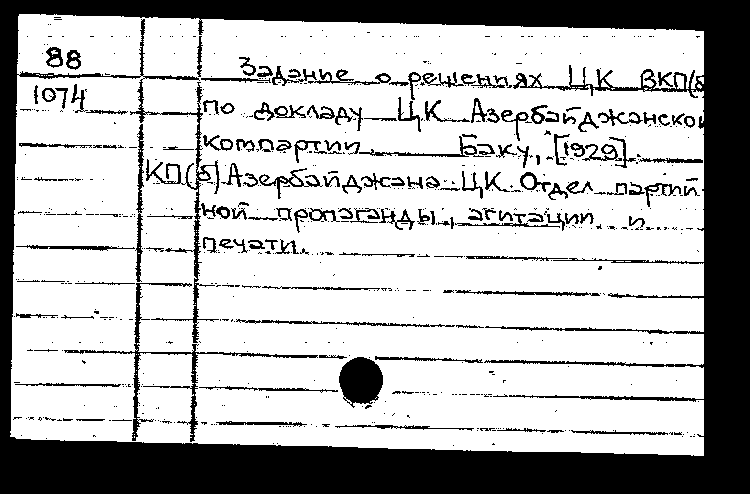 88
Задание о решениях ЦК ВКП(б
1074
по докладу ЦК Азербайджанской
Компартии. Баку, [1929].
КП(б) Азербайджана. ЦК. Отдел партий-
ной пропаганды, агитации и
печати.